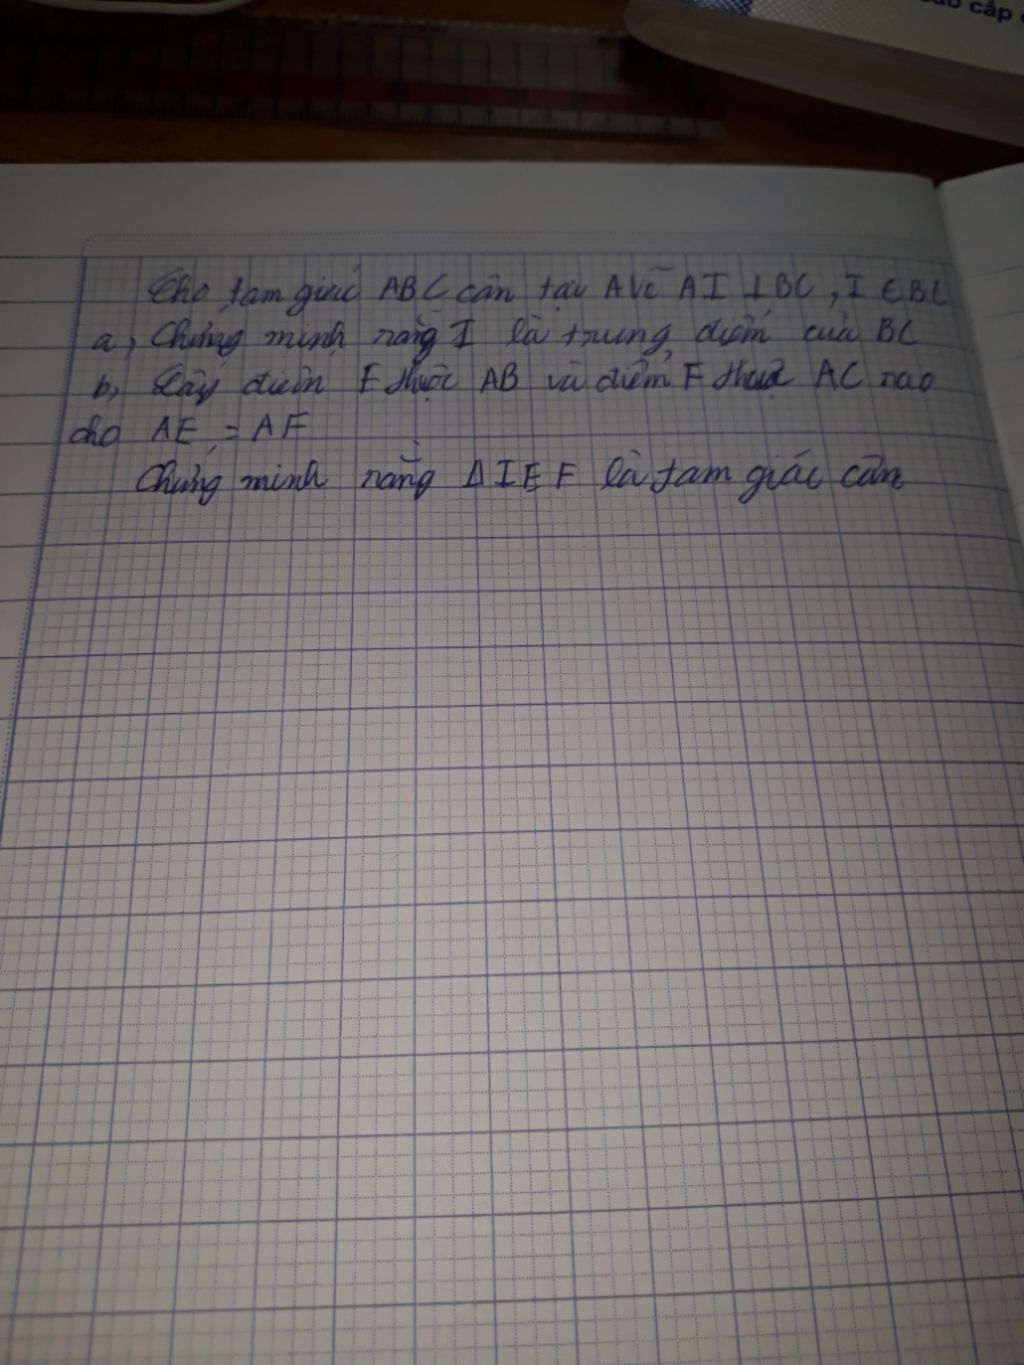 cấp
Cho tam giác ABC cân tại A Vẽ AI ⊥ BC, I ∈ BC
a, Chứng minh rằng I là trung điểm của BC
b, Lấy điểm E thuộc AB và điểm F thuộc AC sao
cho AE = AF
Chứng minh rằng Δ IEF là tam giác cân